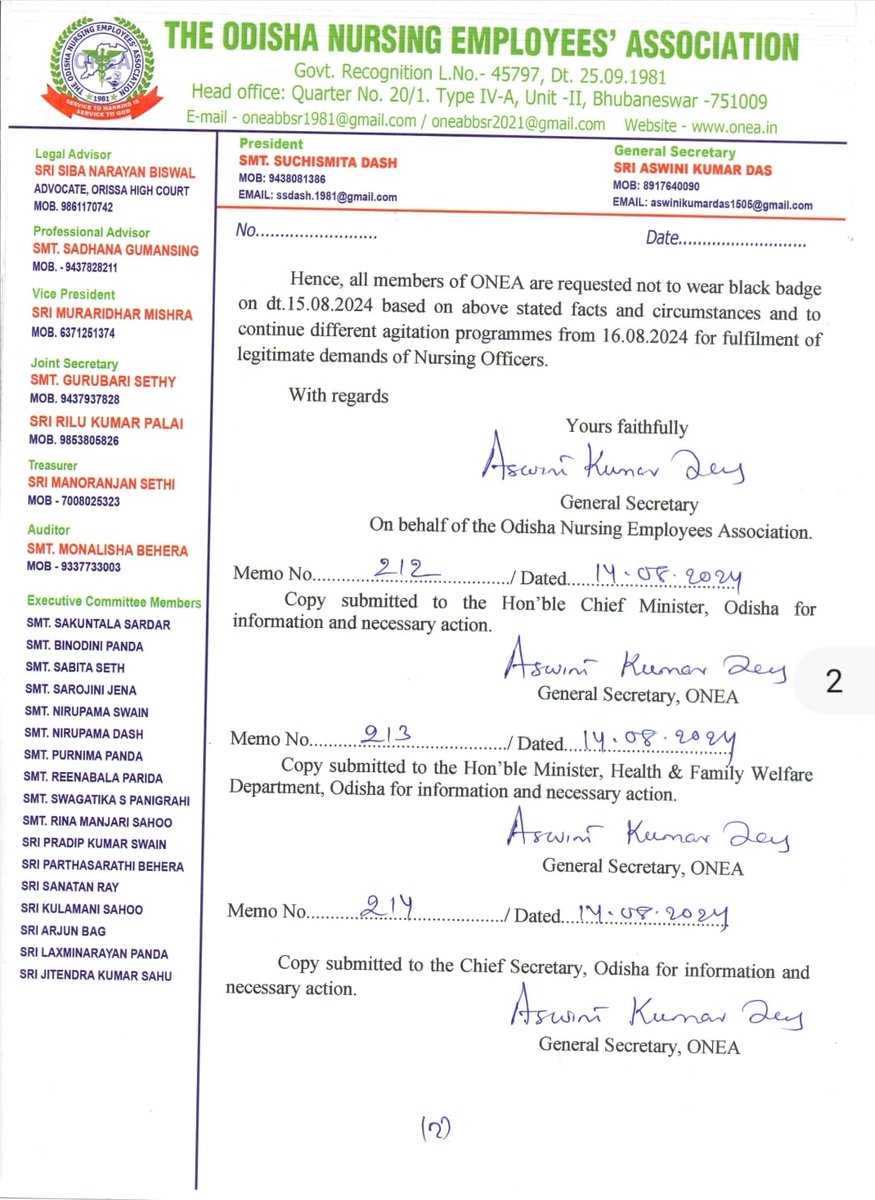 THE ODISHA NURSING EMPLOYEES' ASSOCIATION
Govt. Recognition L.No.- 45797, Dt. 25.09.1981
Head office: Quarter No. 20/1. Type IV-A, Unit -II, Bhubaneswar -751009
E-mail - oneabbsr1981@gmail.com / oneabbsr2021@gmail.com Website - www.onea.in
THE ODISHA NURSING EMPLOYEES' ASSOCIATION
ONEA
1981
SERVICE TO MANKIND IS
SERVICE TO GOD
President
SMT. SUCHISMITA DASH
MOB: 9438081386
EMAIL: ssdash.1981@gmail.com
General Secretary
SRI ASWINI KUMAR DAS
MOB: 8917640090
EMAIL: aswinikumardas1505@gmail.com
Legal Advisor
SRI SIBA NARAYAN BISWAL
ADVOCATE, ORISSA HIGH COURT
MOB. 9861170742
Professional Advisor
SMT. SADHANA GUMANSING
MOB. - 9437828211
Vice President
SRI MURARIDHAR MISHRA
MOB. 6371251374
Joint Secretary
SMT. GURUBARI SETHY
MOB. 9437937828
SRI RILU KUMAR PALAI
MOB. 9853805826
Treasurer
SRI MANORANJAN SETHI
MOB - 7008025323
Auditor
SMT. MONALISHA BEHERA
MOB - 9337733003
Executive Committee Members
SMT. SAKUNTALA SARDAR
SMT. BINODINI PANDA
SMT. SABITA SETH
SMT. SAROJINI JENA
SMT. NIRUPAMA SWAIN
SMT. NIRUPAMA DASH
SMT. PURNIMA PANDA
SMT. REENABALA PARIDA
SMT. SWAGATIKA S PANIGRAHI
SMT. RINA MANJARI SAHOO
SRI PRADIP KUMAR SWAIN
SRI PARTHASARATHI BEHERA
SRI SANATAN RAY
SRI KULAMANI SAHOO
SRI ARJUN BAG
SRI LAXMINARAYAN PANDA
SRI JITENDRA KUMAR SAHU
No........................ Date........................
Hence, all members of ONEA are requested not to wear black badge
on dt.15.08.2024 based on above stated facts and circumstances and to
continue different agitation programmes from 16.08.2024 for fulfilment of
legitimate demands of Nursing Officers.
With regards
Yours faithfully
Aswini Kumar Das
General Secretary
On behalf of the Odisha Nursing Employees Association.
Memo No. 212 / Dated 14.08.2024
Copy submitted to the Hon'ble Chief Minister, Odisha for
information and necessary action.
Aswini Kumar Das
General Secretary, ONEA
2
Memo No. 213 / Dated 14.08.2024
Copy submitted to the Hon'ble Minister, Health & Family Welfare
Department, Odisha for information and necessary action.
Aswini Kumar Das
General Secretary, ONEA
Memo No. 214 / Dated 14.08.2024
Copy submitted to the Chief Secretary, Odisha for information and
necessary action.
Aswini Kumar Das
General Secretary, ONEA